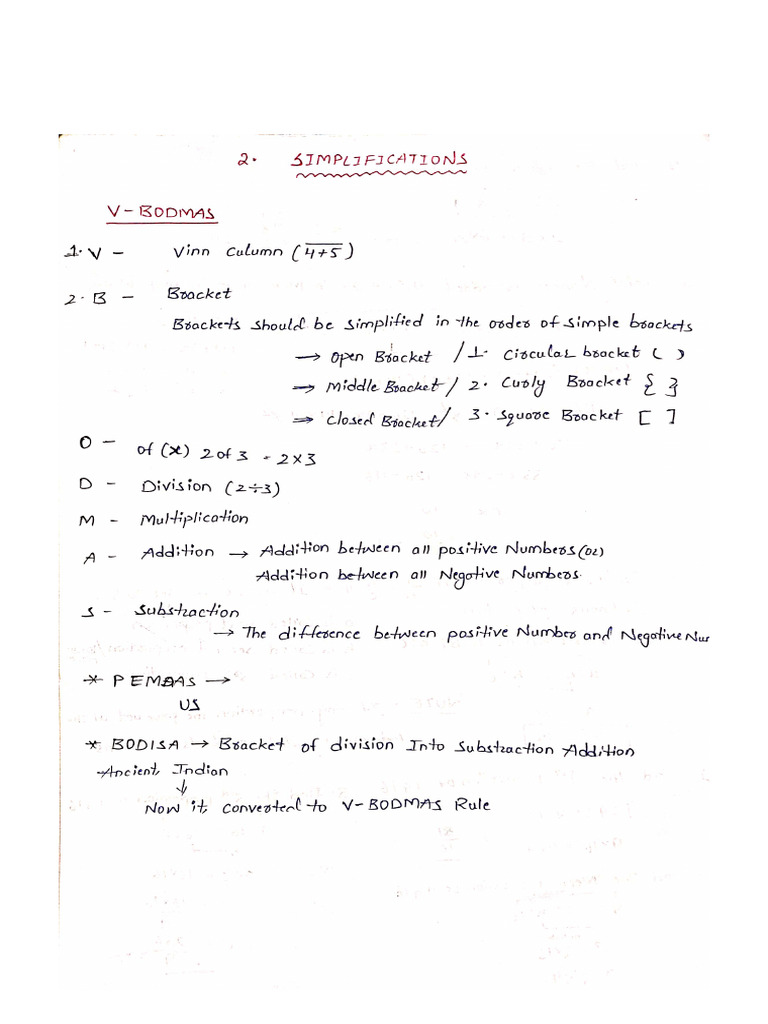 2. SIMPLIFICATIONS
V - BODMAS
1. V - Vinn Culumn ( 4+5 )
2. B - Bracket
Brackets should be simplified in the order of simple brackets
→ open Bracket / 1. Circular bracket ( )
→ Middle Bracket / 2. Curly Bracket { }
→ closed Bracket / 3. Square Bracket [ ]
O - of (x) 2 of 3 = 2x3
D - Division (2÷3)
M - Multiplication
A - Addition → Addition between all positive Numbers (or)
Addition between all Negative Numbers.
S - Substraction
→ The difference between positive Number and Negative Nu
* PEMDAS →
US
* BODISA → Bracket of division Into Substraction Addition
Ancient, Indian
↓
Now it, converted to V-BODMAS Rule